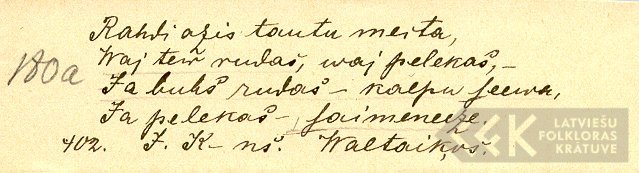 Rahdi azis tautu meita,
Waj tew rudas, waj pelekas,-
180a
Ja buhs rudas - kalpu seewa,
Ja pelekas - saimeneeze.
402. J. K-nš. Waltaiķos.
LATVIEŠU
FOLKLORAS
KRĀTUVE